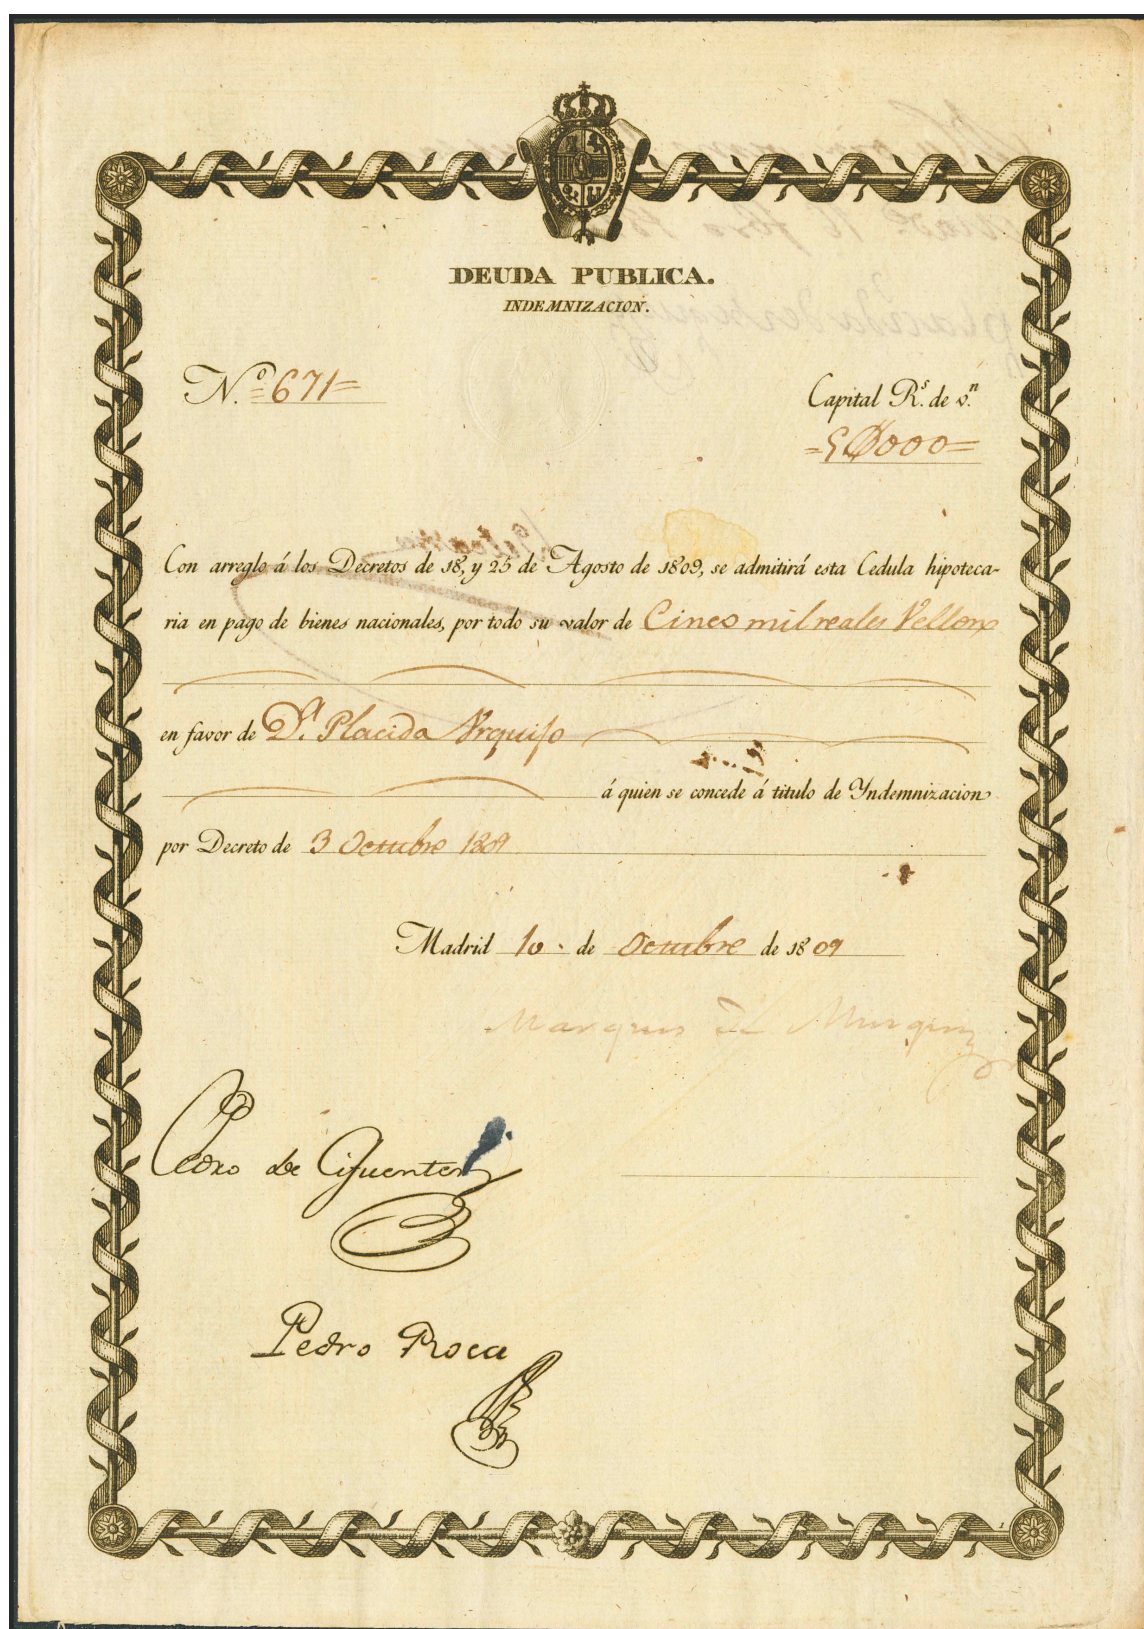 DEUDA PUBLICA.
INDEMNIZACION.
N.º =671=
Capital R.s de v.n
=5000=
Con arreglo á los Decretos de 18, y 25 de Agosto de 1809, se admitirá esta Cedula hipoteca-
ria en pago de bienes nacionales, por todo su valor de Cinco mil reales Vellon
en favor de D.ª Placida Urquijo
á quien se concede á titulo de Yndemnizacion
por Decreto de 3 Octubre 1809
Madrid 10 de Octubre de 1809
Pedro de Cifuentes
Pedro Roca